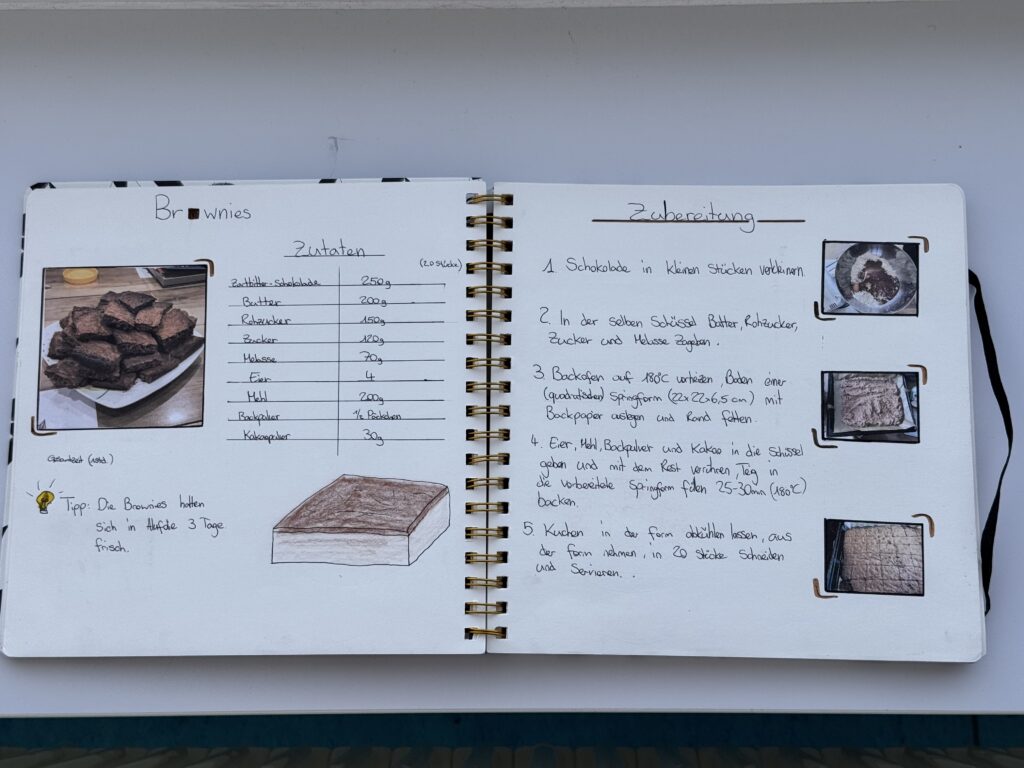 Brownies
Zutaten
(20 Stücke)
Zartbitter-Schokolade 250g
Butter 200g
Rohzucker 150g
Zucker 120g
Melasse 70g
Eier 4
Mehl 200g
Backpulver 1/2 Päckchen
Kakaopulver 30g
Gesamtzeit (1 Std.)
Tipp: Die Brownies halten
sich in Alufolie 3 Tage
frisch.
Zubereitung
1. Schokolade in kleinen Stücken verkleinern
2. In der selben Schüssel Butter, Rohzucker,
Zucker und Melasse Zugeben.
3. Backofen auf 180°C vorheizen, Boden einer
(quadratischen) Springform (22x22x6,5 cm) mit
Backpapier auslegen und Rand fetten.
4. Eier, Mehl, Backpulver und Kakao in die Schüssel
geben und mit dem Rest verrühren, Teig in
die vorbereitete Springform füllen 25-30min (180°C)
backen.
5. Kuchen in der form abkühlen lassen, aus
der form nehmen, in 20 stücke Schneiden
und Servieren.